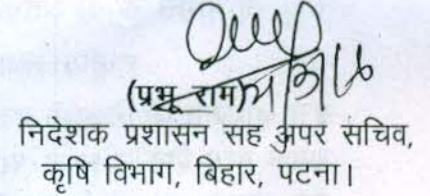 (प्रभू राम)
निदेशक प्रशासन सह अपर सचिव,
कृषि विभाग, बिहार, पटना।